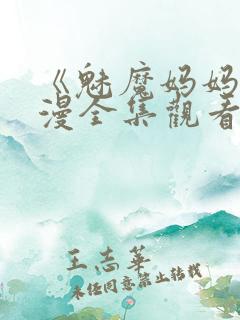 《魅魔妈妈
漫全集觀看
王志華
未经同意禁止转载